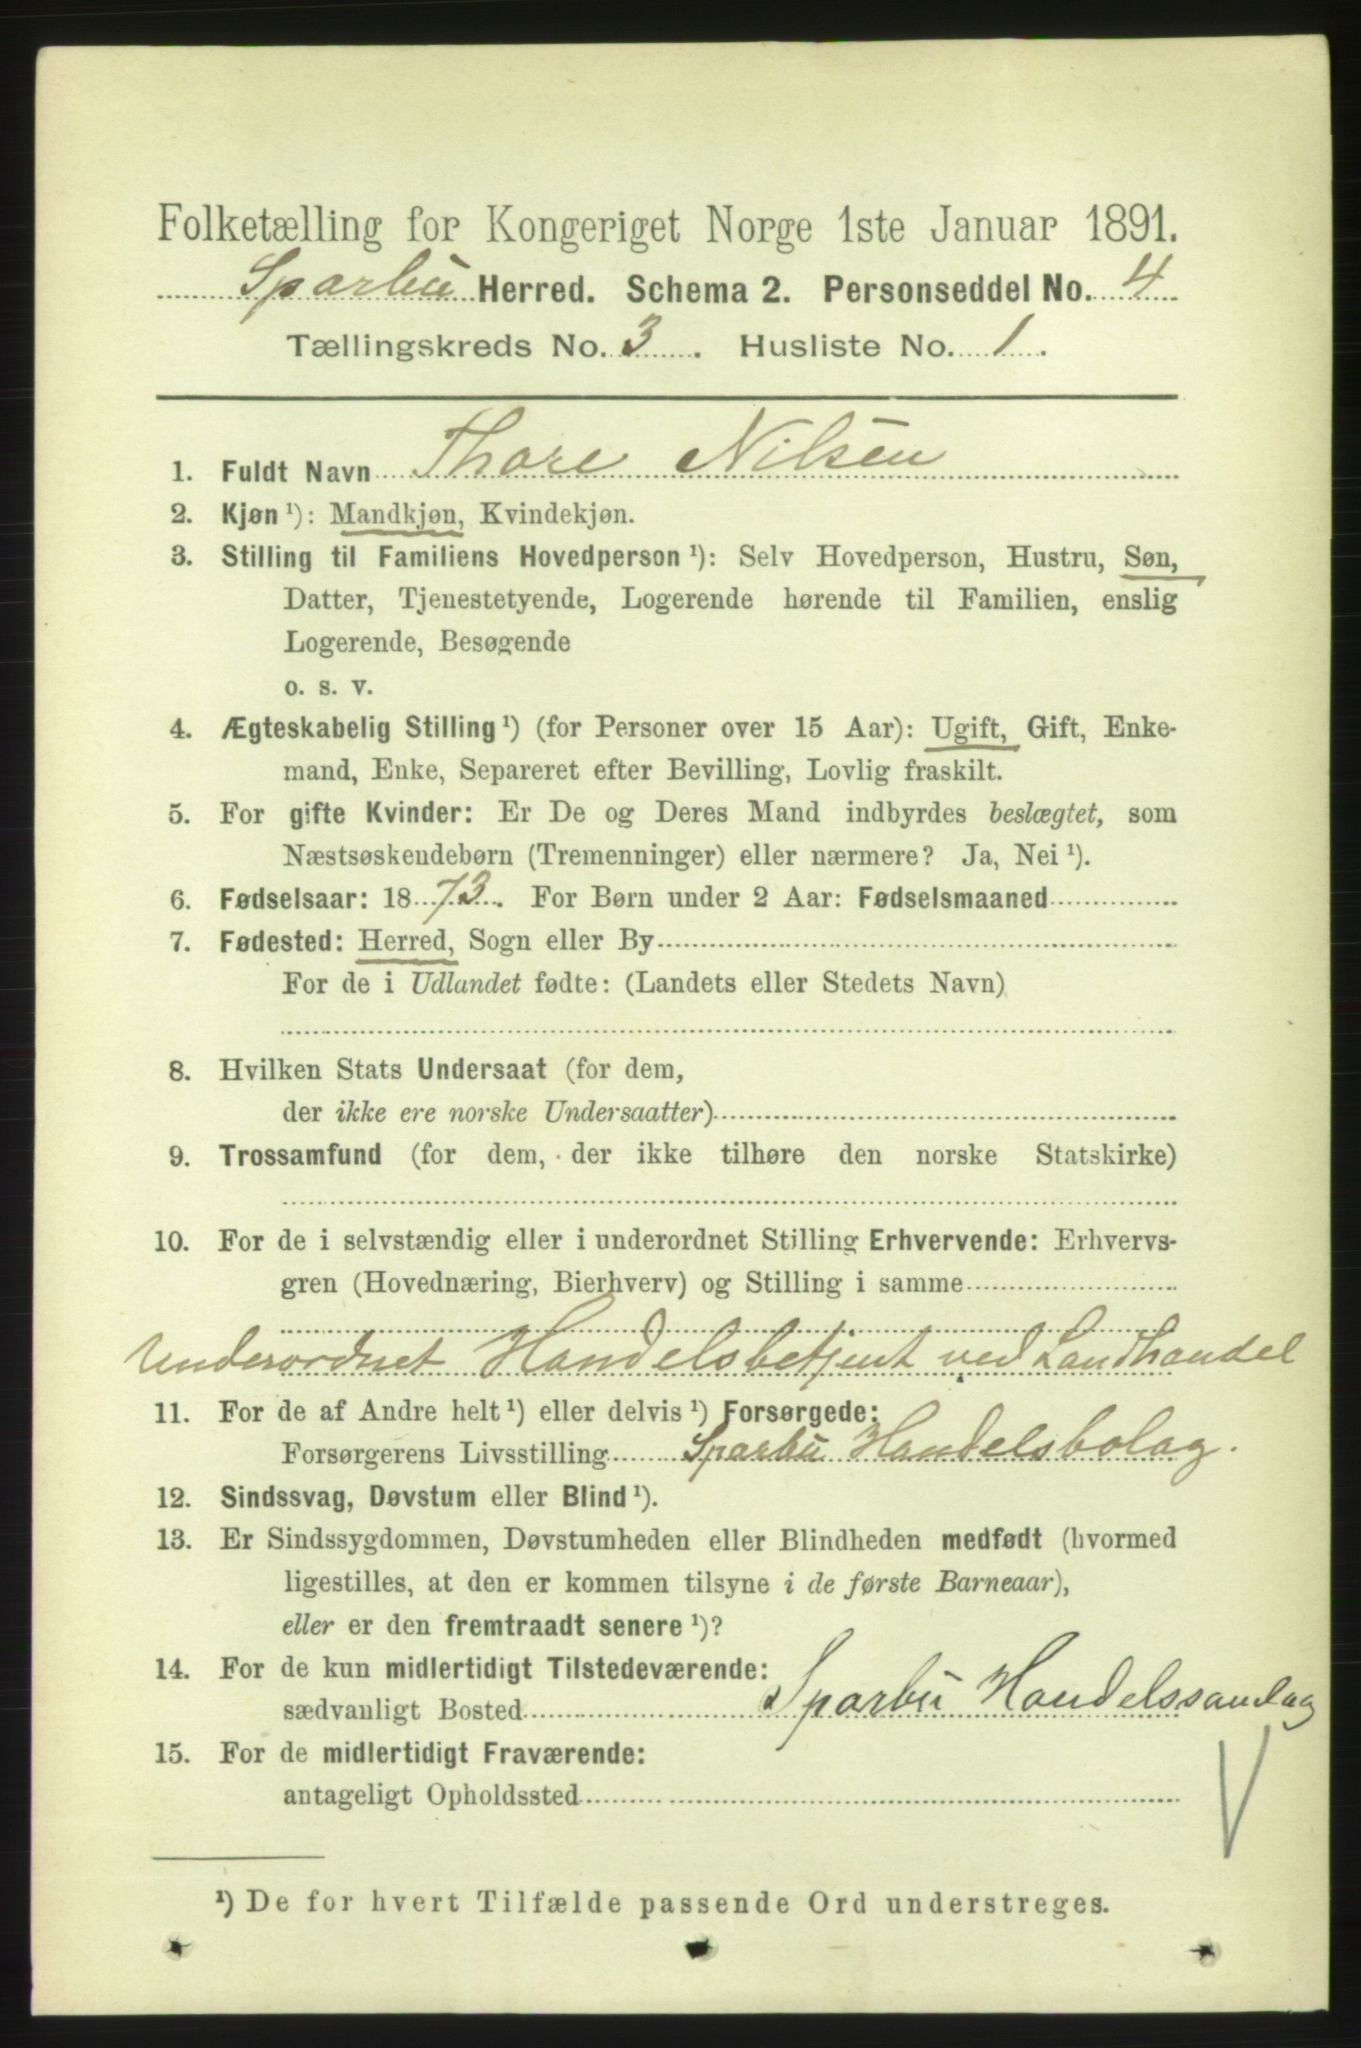 Folketælling for Kongeriget Norge 1ste Januar 1891.
Sparbu Herred. Schema 2. Personseddel No. 4
Tællingskreds No. 3. Husliste No. 1.
1. Fuldt Navn Thore Nilsen
2. Kjøn ¹): Mandkjøn, Kvindekjøn.
3. Stilling til Familiens Hovedperson ¹): Selv Hovedperson, Hustru, Søn,
Datter, Tjenestetyende, Logerende hørende til Familien, enslig
Logerende, Besøgende
o. s. v.
4. Ægteskabelig Stilling ¹) (for Personer over 15 Aar): Ugift, Gift, Enke-
mand, Enke, Separeret efter Bevilling, Lovlig fraskilt.
5. For gifte Kvinder: Er De og Deres Mand indbyrdes beslægtet, som
Næstsøskendebørn (Tremenninger) eller nærmere? Ja, Nei ¹).
6. Fødselsaar: 1873. For Børn under 2 Aar: Fødselsmaaned
7. Fødested: Herred, Sogn eller By
For de i Udlandet fødte: (Landets eller Stedets Navn)
8. Hvilken Stats Undersaat (for dem,
der ikke ere norske Undersaatter)
9. Trossamfund (for dem, der ikke tilhøre den norske Statskirke)
10. For de i selvstændig eller i underordnet Stilling Erhvervende: Erhvervs-
gren (Hovednæring, Bierhverv) og Stilling i samme
Underordnet Handelsbetjent ved Landhandel
11. For de af Andre helt ¹) eller delvis ¹) Forsørgede:
Forsørgerens Livsstilling Sparbu Handelsbolag.
12. Sindssvag, Døvstum eller Blind ¹).
13. Er Sindssygdommen, Døvstumheden eller Blindheden medfødt (hvormed
ligestilles, at den er kommen tilsyne i de første Barneaar),
eller er den fremtraadt senere ¹)?
14. For de kun midlertidigt Tilstedeværende:
sædvanligt Bosted Sparbu Handelssamlag
15. For de midlertidigt Fraværende:
antageligt Opholdssted
¹) De for hvert Tilfælde passende Ord understreges.